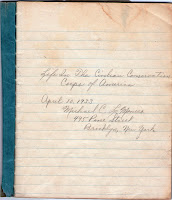 Life In The Civilian Conservation
Corps of America
April 18, 1933
Michael C.
495 Pine Street
Brooklyn, New York